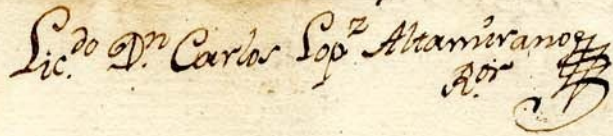 Lic.do D.n Carlos Lopz Altamirano
R.or